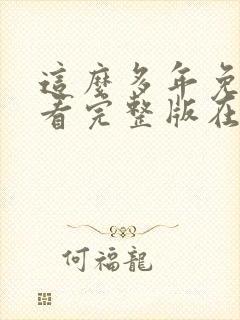 這麼多年免
看完整版在
何福龍